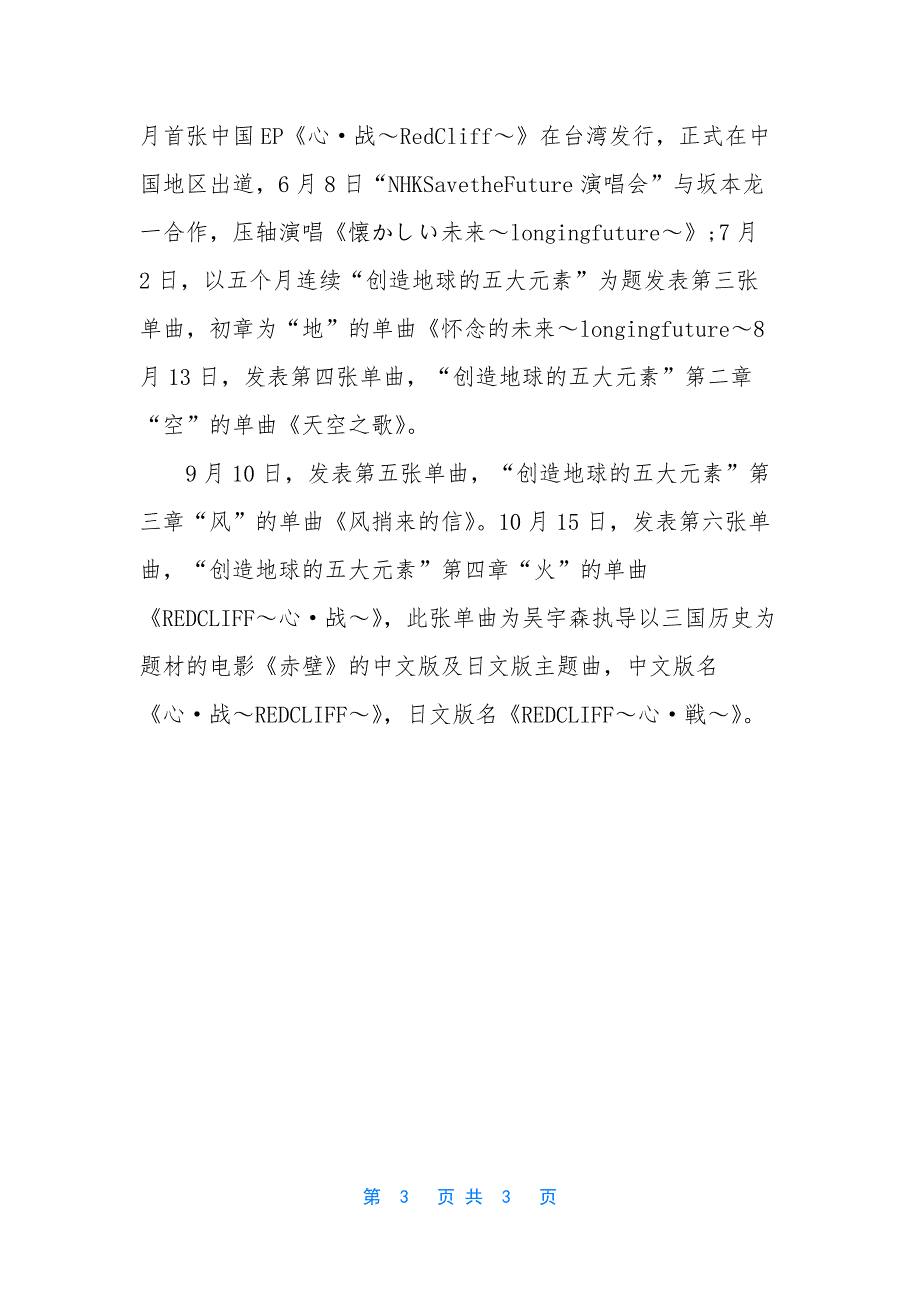 月首张中国 EP《心·战～RedCliff～》在台湾发行，正式在中
国地区出道，6 月 8 日“NHKSavetheFuture 演唱会”与坂本龙
一合作，压轴演唱《懐かしい未来～longingfuture～》;7 月
2 日，以五个月连续“创造地球的五大元素”为题发表第三张
单曲，初章为“地”的单曲《怀念的未来～longingfuture～8
月 13 日，发表第四张单曲，“创造地球的五大元素”第二章
“空”的单曲《天空之歌》。
9 月 10 日，发表第五张单曲，“创造地球的五大元素”第
三章“风”的单曲《风捎来的信》。10 月 15 日，发表第六张单
曲，“创造地球的五大元素”第四章“火”的单曲
《REDCLIFF～心·战～》，此张单曲为吴宇森执导以三国历史为
题材的电影《赤壁》的中文版及日文版主题曲，中文版名
《心·战～REDCLIFF～》，日文版名《REDCLIFF～心·戦～》。
第 3 页 共 3 页